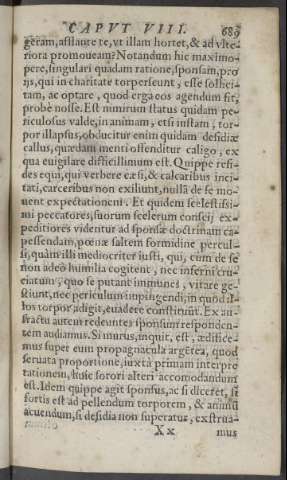 CAPVT VIII. 689
geram, astante te, vt illam hortet, & ad vlte-
riora promoueam? Notandum hic maximo-
pere, singulari quadam ratione, sponsam, pro
ijs, qui in charitate torpescunt, esse solici-
tam, ac optare, quod erga eos agendum sit,
probè nosse. Est nimirum status quidam pe-
riculosus valde, in animam, etsi instam, tor-
por illapsus, obducitur enim quidam desidiæ
callus, quædam menti offenditur caligo, ex
qua euigilare difficillimum est. Quippe resi-
des equi, qui verbere cæsi, & calcaribus inci-
tati, carceribus non exiliunt, nullã de se mo-
uent expectationem. Et quidem scelestissi-
mi peccatores, suorum scelerum conscij ex-
peditiores videntur ad sponsæ doctrinam ca-
pessendam, pœnæ saltem formidine percul-
si, quàm illi mediocriter iusti, qui, cùm de se
non adeò humilia cogitent, nec inferni cru-
ciatum, quo se putant immunes, vitare ge-
stiunt, nec periculum impingendi, in quod il-
los torpor adigit, euadere constituũt. Ex an-
fractu autem redeuntes sponsum responden-
tem audiamus. Si murus, inquit, est, ædifice-
mus super eum propugnacula argẽtea, quod
seruata proportione, iuxta primam interpre
tationem, huic sorori alteri accomodandum
est. Idem quippe agit sponsus, ac si diceret, si
fortis est ad pellendum torporem, & animũ
acuendum, si desidia non superatur, exstrua-
Xx mus